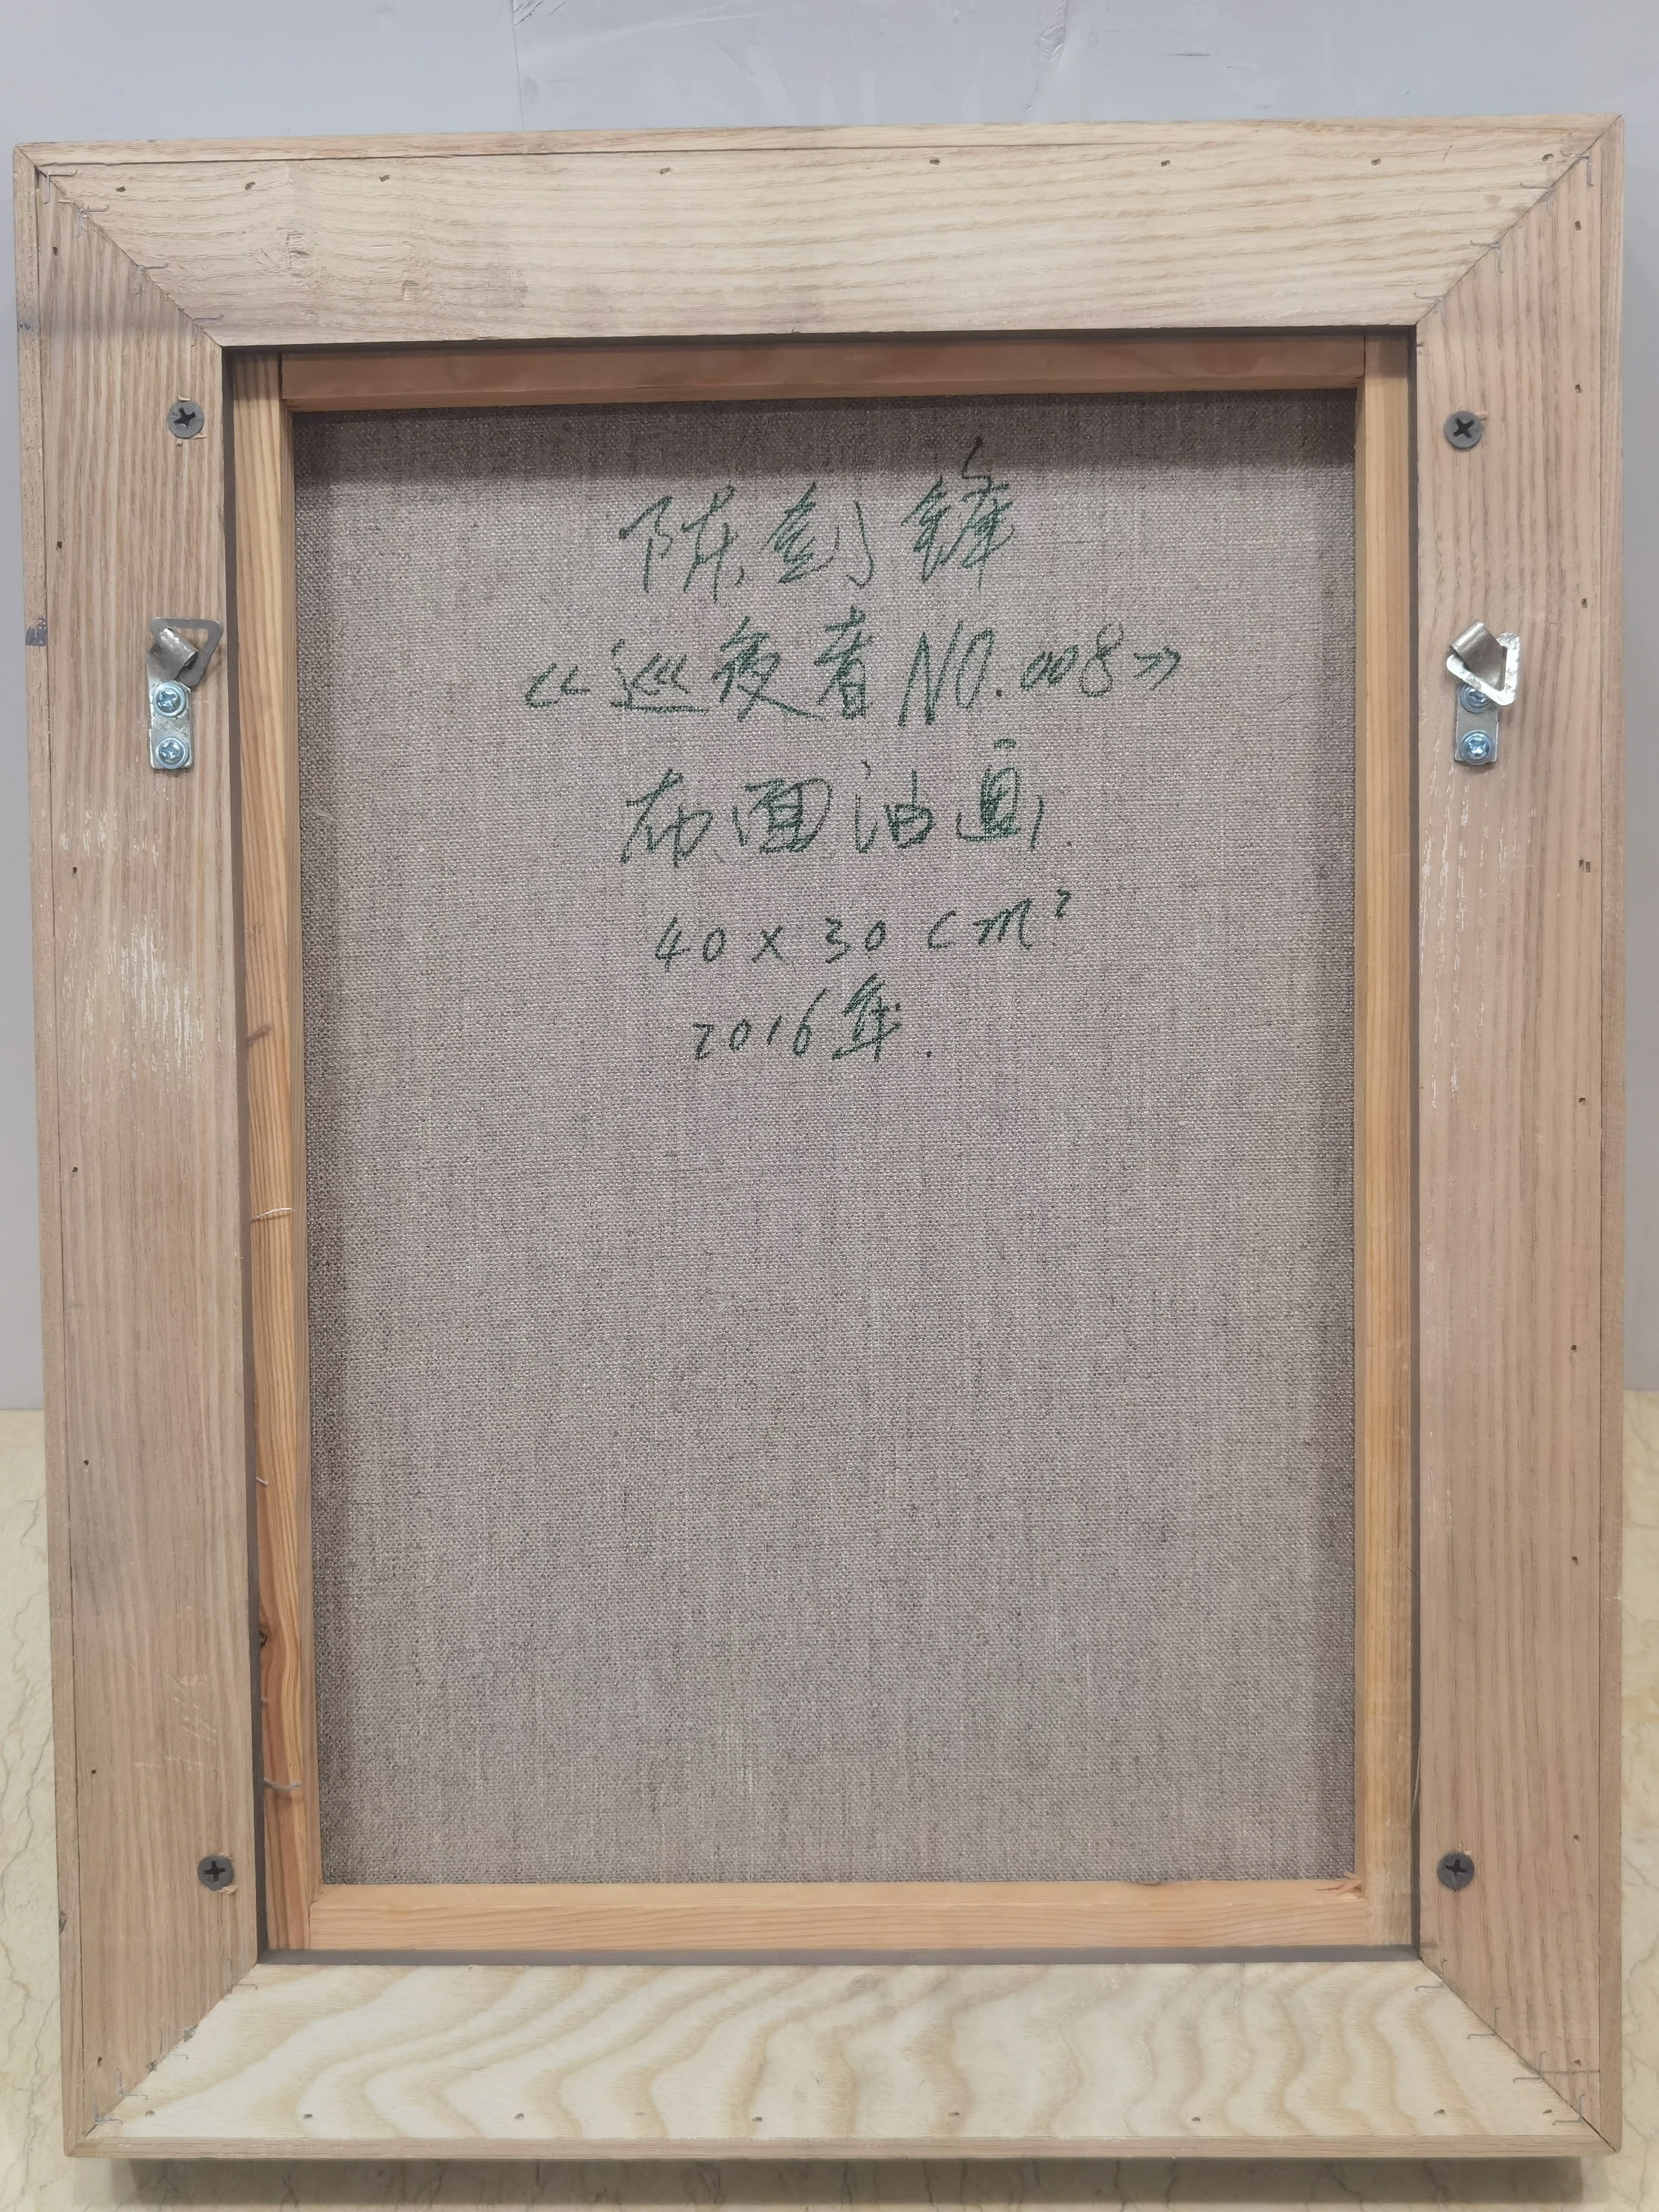 陈剑锋
《巡夜者NO.008》
布面油画
40×30cm²
2016年.